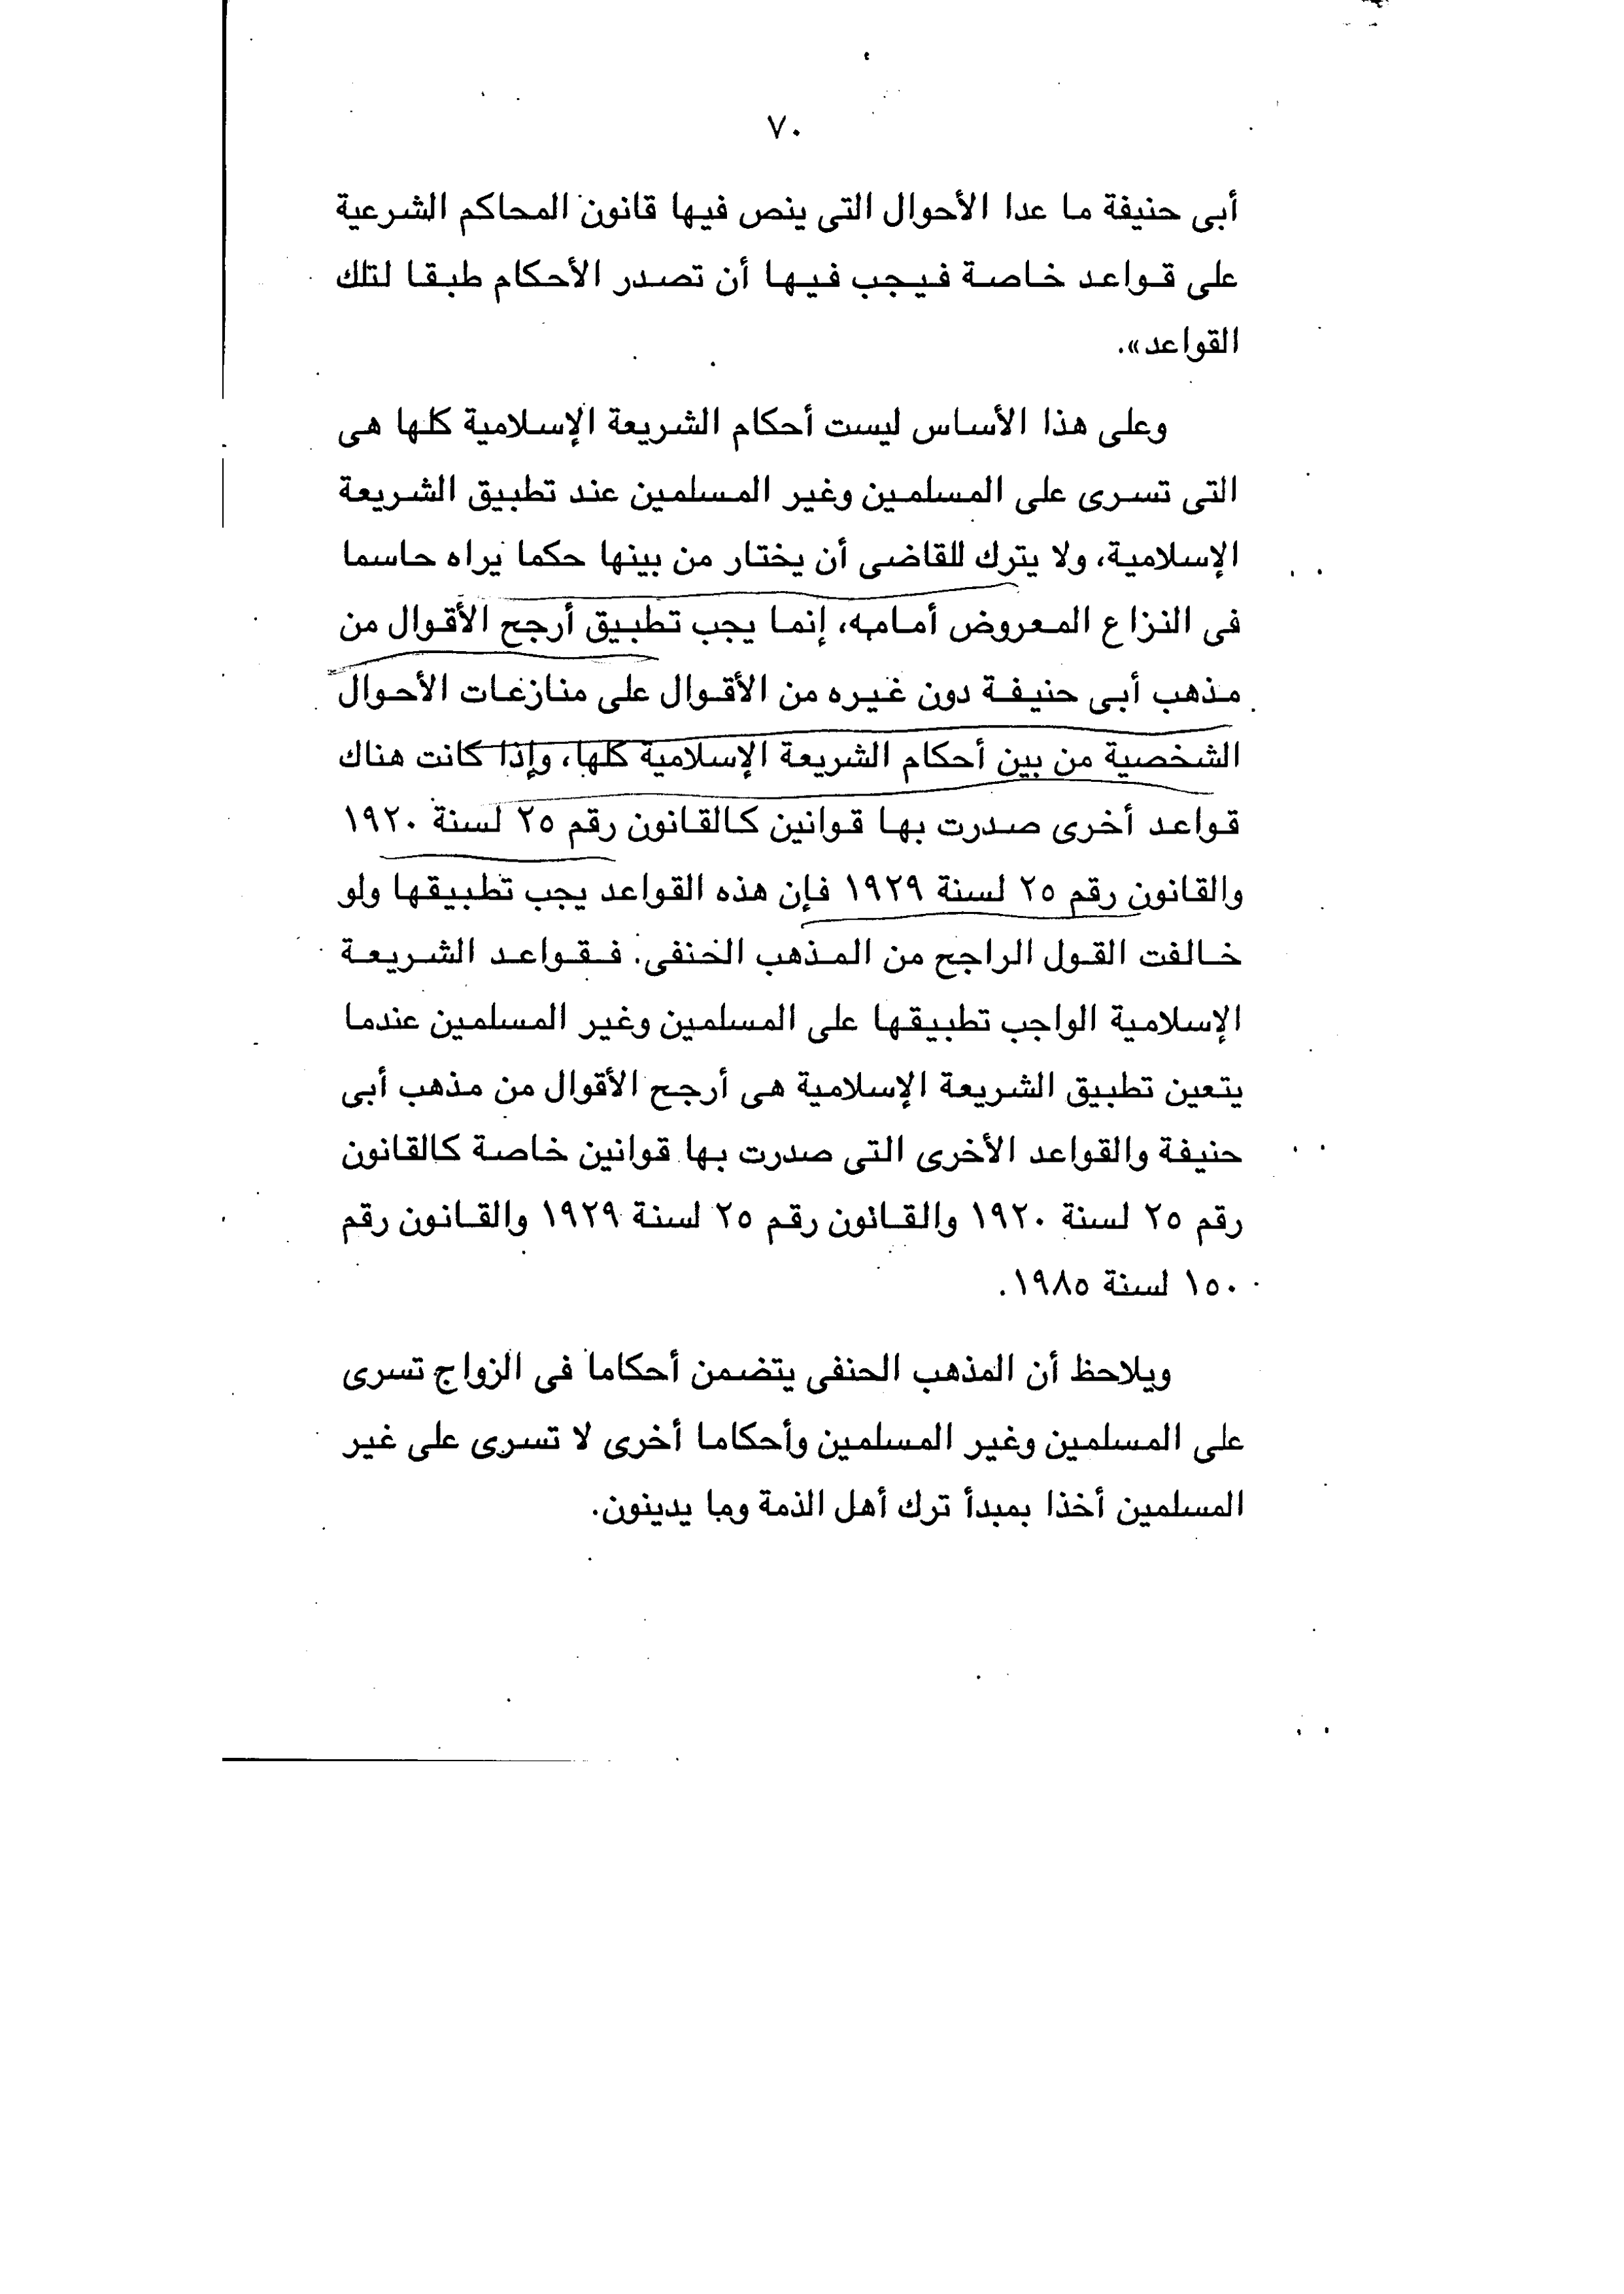 ٧٠
أبى حنيفة ما عدا الأحوال التى ينص فيها قانون المحاكم الشرعية
على قواعد خاصة فيجب فيها أن تصدر الأحكام طبقا لتلك
القواعد».
وعلى هذا الأساس ليست أحكام الشريعة الإسلامية كلها هى
التى تسرى على المسلمين وغير المسلمين عند تطبيق الشريعة
الإسلامية، ولا يترك للقاضى أن يختار من بينها حكما يراه حاسما
فى النزاع المعروض أمامه، إنما يجب تطبيق أرجح الأقوال من
مذهب أبى حنيفة دون غيره من الأقوال على منازعات الأحوال
الشخصية من بين أحكام الشريعة الإسلامية كلها، وإذا كانت هناك
قواعد أخرى صدرت بها قوانين كالقانون رقم ٢٥ لسنة ١٩٢٠
والقانون رقم ٢٥ لسنة ١٩٢٩ فإن هذه القواعد يجب تطبيقها ولو
خالفت القول الراجح من المذهب الحنفى. فقواعد الشريعة
الإسلامية الواجب تطبيقها على المسلمين وغير المسلمين عندما
يتعين تطبيق الشريعة الإسلامية هى أرجح الأقوال من مذهب أبى
حنيفة والقواعد الأخرى التى صدرت بها قوانين خاصة كالقانون
رقم ٢٥ لسنة ١٩٢٠ والقانون رقم ٢٥ لسنة ١٩٢٩ والقانون رقم
١٥٠ لسنة ١٩٨٥.
ويلاحظ أن المذهب الحنفى يتضمن أحكاما فى الزواج تسرى
على المسلمين وغير المسلمين وأحكاما أخرى لا تسرى على غير
المسلمين أخذا بمبدأ ترك أهل الذمة وما يدينون.